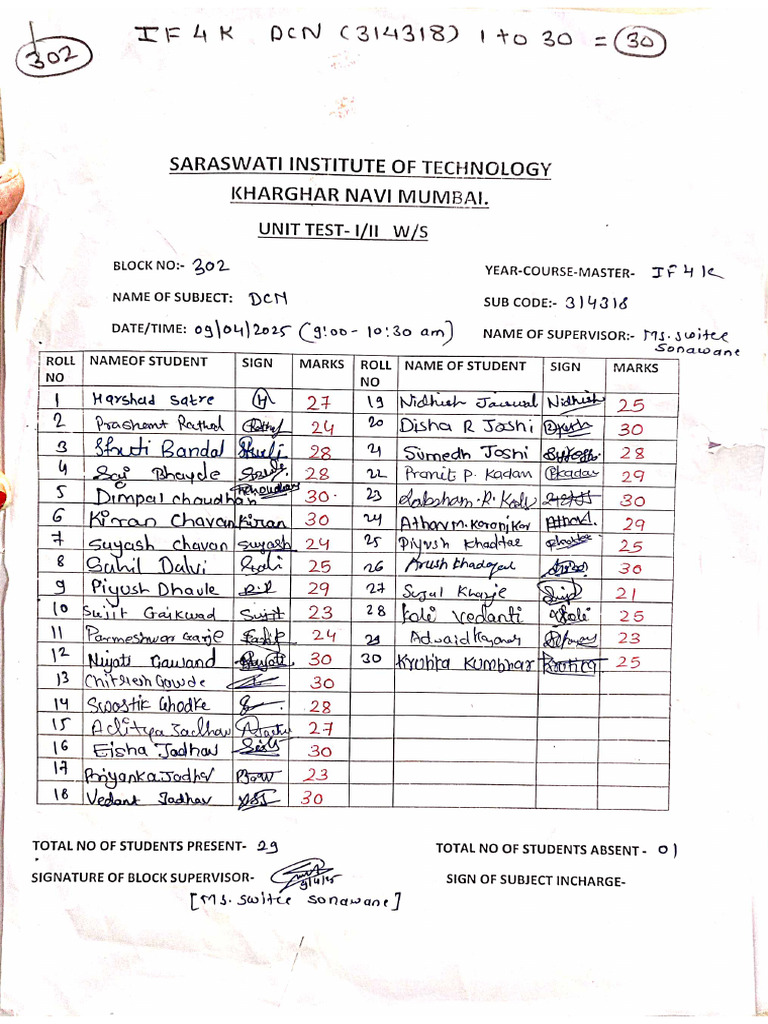 302
IF 4 K DCN (314318) 1 to 30 = 30
SARASWATI INSTITUTE OF TECHNOLOGY
KHARGHAR NAVI MUMBAI.
UNIT TEST- I/II W/S
BLOCK NO:- 302 YEAR-COURSE-MASTER- IF 4 K
NAME OF SUBJECT: DCN SUB CODE:- 314318
DATE/TIME: 09/04/2025 (9:00 - 10:30 am) NAME OF SUPERVISOR:- Ms. Switee Sonawane
ROLL NO NAMEOF STUDENT SIGN MARKS ROLL NO NAME OF STUDENT SIGN MARKS
1 Harshad Satre H 27 19 Nidhish Jaiswal Nidhish 25
2 Prashant Rathod 24 20 Disha R Joshi Disha 30
3 Shruti Bandal Shruti 28 21 Sumedh Joshi 28
4 Sai Bhayde 28 22 Pranit P. Kadam Pkadam 29
5 Dimpal Choudhari 30 23 R. 30
6 Kirran Chavan Kiran 30 24 Atharv M. Karanjkar Atharv 29
7 Suyash Chavan Suyash 24 25 Piyush 25
8 Sahil Dalvi 25 26 Arush 30
9 Piyush Dhavle 29 27 Sujal Kharje 21
10 Sujit Gaikwad Sujit 23 28 Koli Vedanti VKoli 25
11 Parmeshwar Garje 24 29 Advaid 23
12 Niyati Gawand 30 30 Krutika Kumbhar Krutika 25
13 Chitresh Gowde 30
14 Swostik Ghodke 28
15 Aditya Jadhav 27
16 Eisha Jadhav 30
17 Priyanka Jadhav 23
18 Vedant Jadhav 30
TOTAL NO OF STUDENTS PRESENT- 29 TOTAL NO OF STUDENTS ABSENT- 01
SIGNATURE OF BLOCK SUPERVISOR- 9/4/25 SIGN OF SUBJECT INCHARGE-
[Ms. Switee Sonawane]